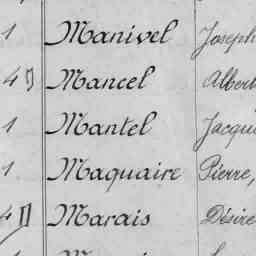 1 Manivel Joseph
45 Mancel Albert
1 Mantel Jacqu
1 Maquaire Pierre,
4 Marais Désiré